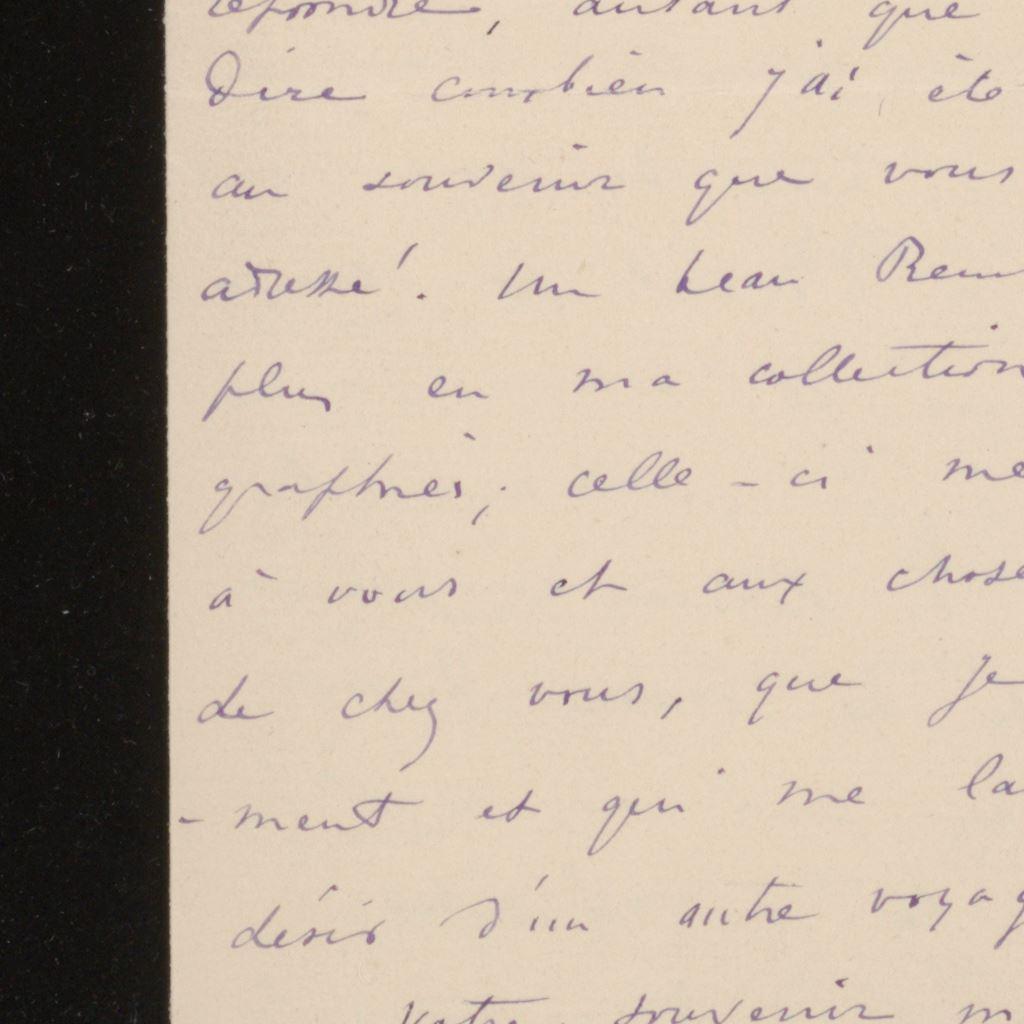 répondre, autant que
Dire combien j'ai été
au souvenir que vous
adressé. Un beau Rem
plus en ma collection
graphies; celle-ci me
à vous et aux chose
de chez vous, que je
-ment et qui me la
désir d'un autre voyag
Votre souvenir m